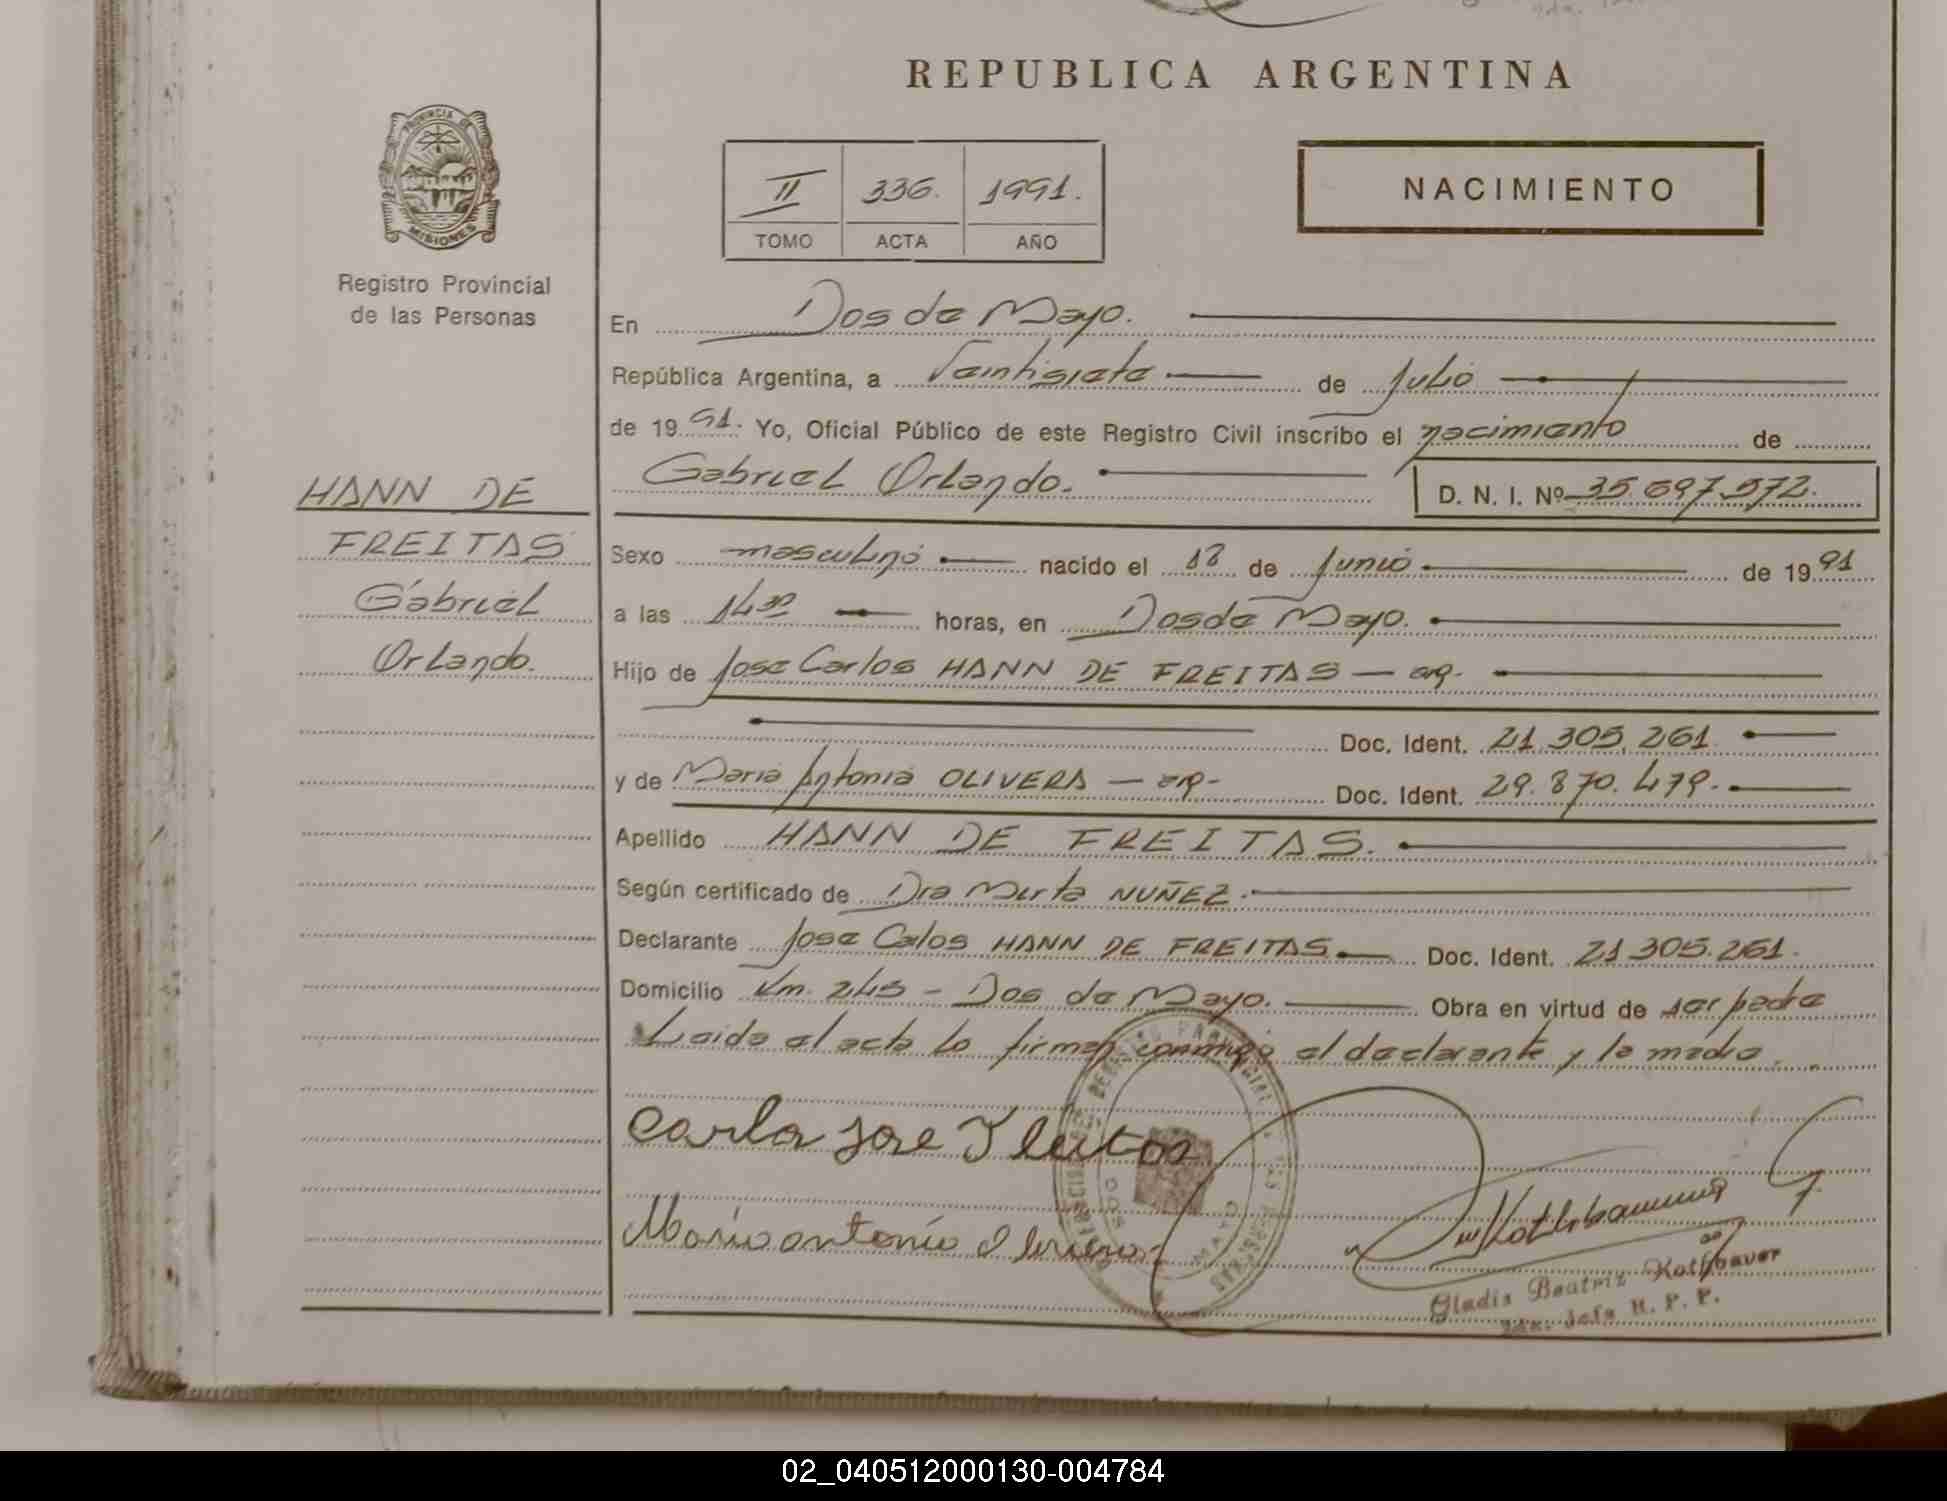 REPUBLICA ARGENTINA
PROVINCIA DE
MISIONES
Registro Provincial
de las Personas
II 336. 1991.
TOMO ACTA AÑO
NACIMIENTO
En Dos de Mayo.
República Argentina, a Veintisiete de Julio
de 1991. Yo, Oficial Público de este Registro Civil inscribo el nacimiento de
Gabriel Orlando.
D. N. I. Nº 35.697.572.
HANN DE
FREITAS
Gabriel
Orlando.
Sexo masculino nacido el 18 de Junio de 1991
a las 14 30 horas, en Dos de Mayo.
Hijo de Jose Carlos HANN DE FREITAS — arg.
Doc. Ident. 21.305.261
y de Maria Antonia OLIVERA — arg- Doc. Ident. 29.870.479.
Apellido HANN DE FREITAS.
Según certificado de Dra Mirta NUÑEZ.
Declarante Jose Calos HANN DE FREITAS Doc. Ident. 21.305.261.
Domicilio Km. 245 - Dos de Mayo. Obra en virtud de ser padre
Leida el acta lo firman conmigo el declarante y la madre.
Gladis Beatriz Kothbauer
2da. Jefa R. P. P.
02_040512000130-004784